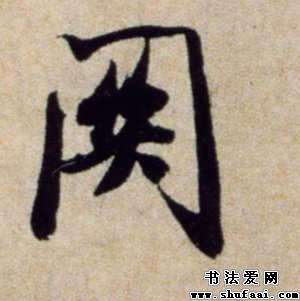 闕
书法爱网
www.shufaai.com